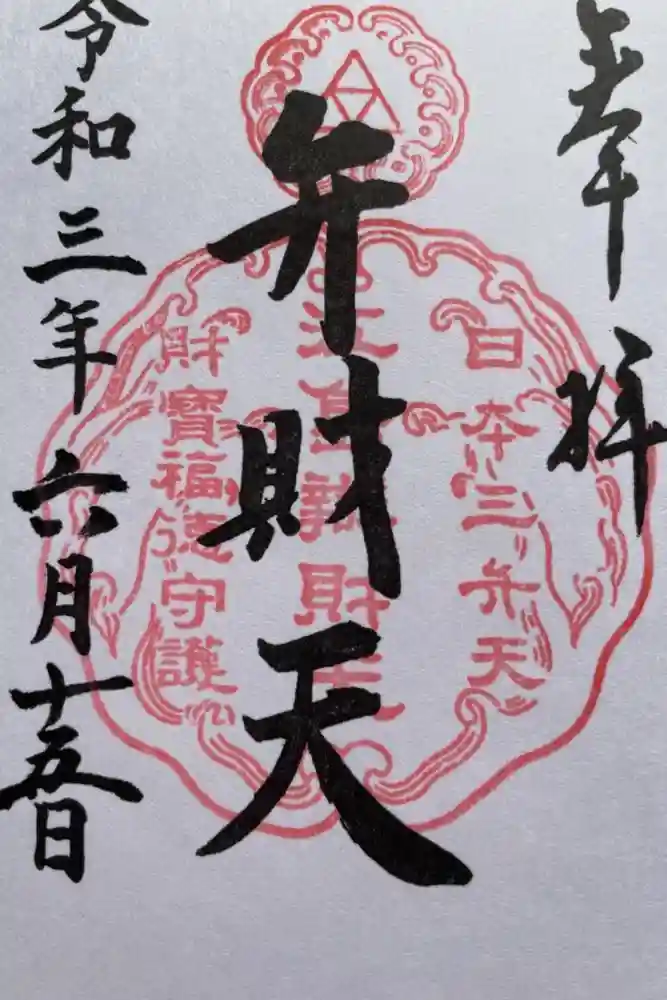 奉拝
日本三弁天
弁財天
財寶福徳守護
令和三年六月十五日